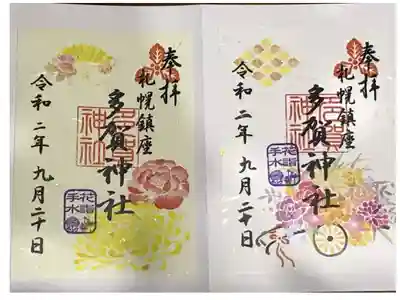 奉拝
札幌鎮座
多賀神社
多賀
神社
令和二年九月二十日
花詣
手水
奉拝
札幌鎮座
多賀神社
多賀
神社
令和二年九月二十日
花詣
手水